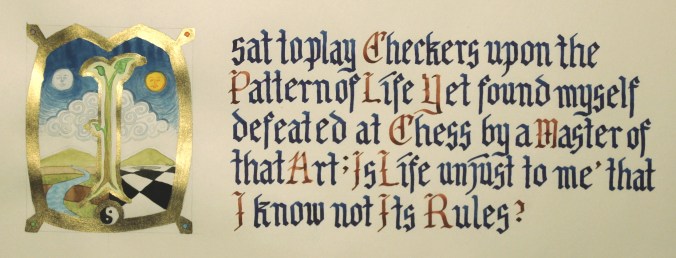 I sat to play Checkers upon the
Pattern of Life Yet found myself
defeated at Chess by a Master of
that Art; Is Life unjust to me' that
I know not Its Rules?